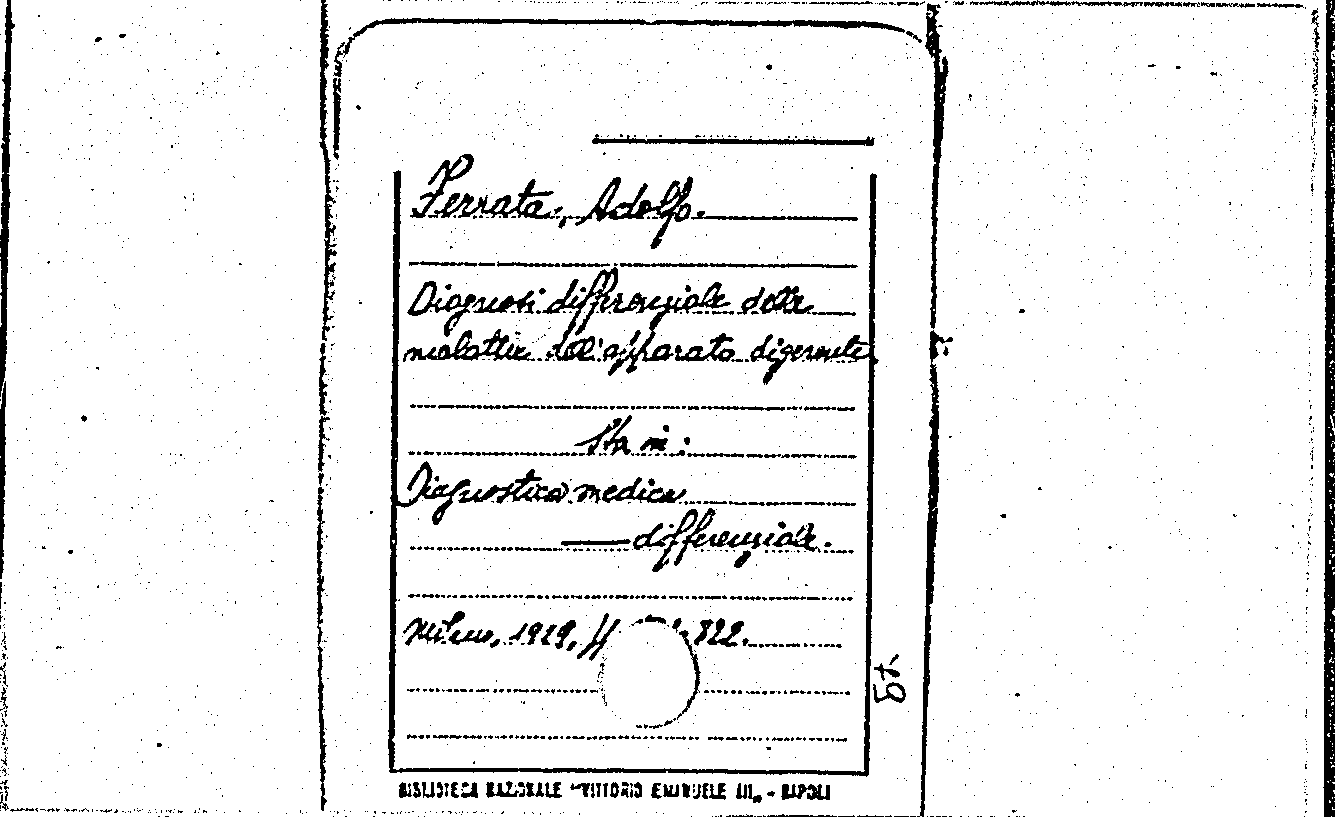 Ferrata, Adolfo.
Diagnosi differenziale delle
malattie dell'apparato digerente.
Sta in:
Diagnostica medica
— differenziale.
Milano, 1929, 822.
BIBLIOTECA NAZIONALE "VITTORIO EMANUELE III„ - NAPOLI